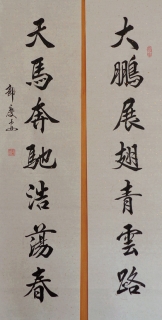 大鵬展翅青雲路
天馬奔馳浩蕩春